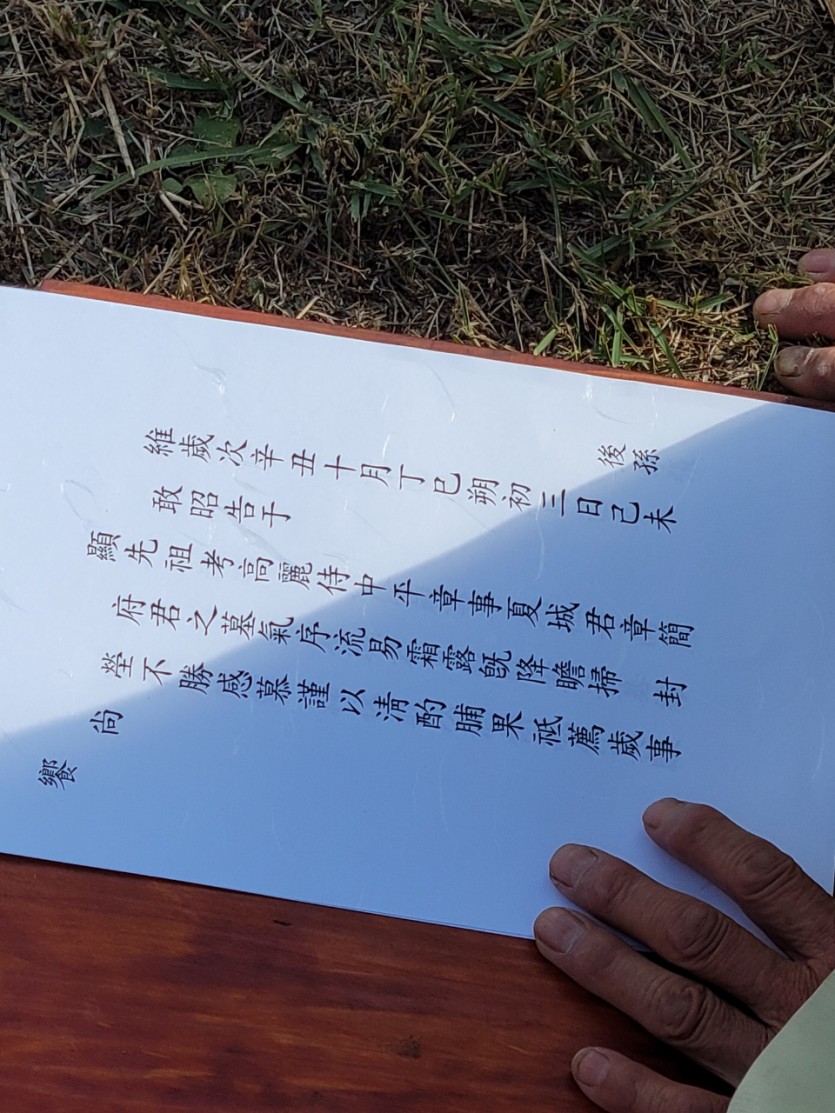 後孫
維歲次辛丑十月丁巳朔初三日己未
敢昭告于
顯先祖考高麗侍中平章事夏城君章簡
府君之墓氣序流易霜露旣降瞻掃 封
塋不勝感慕謹以清酌脯果祗薦歲事
尚
饗